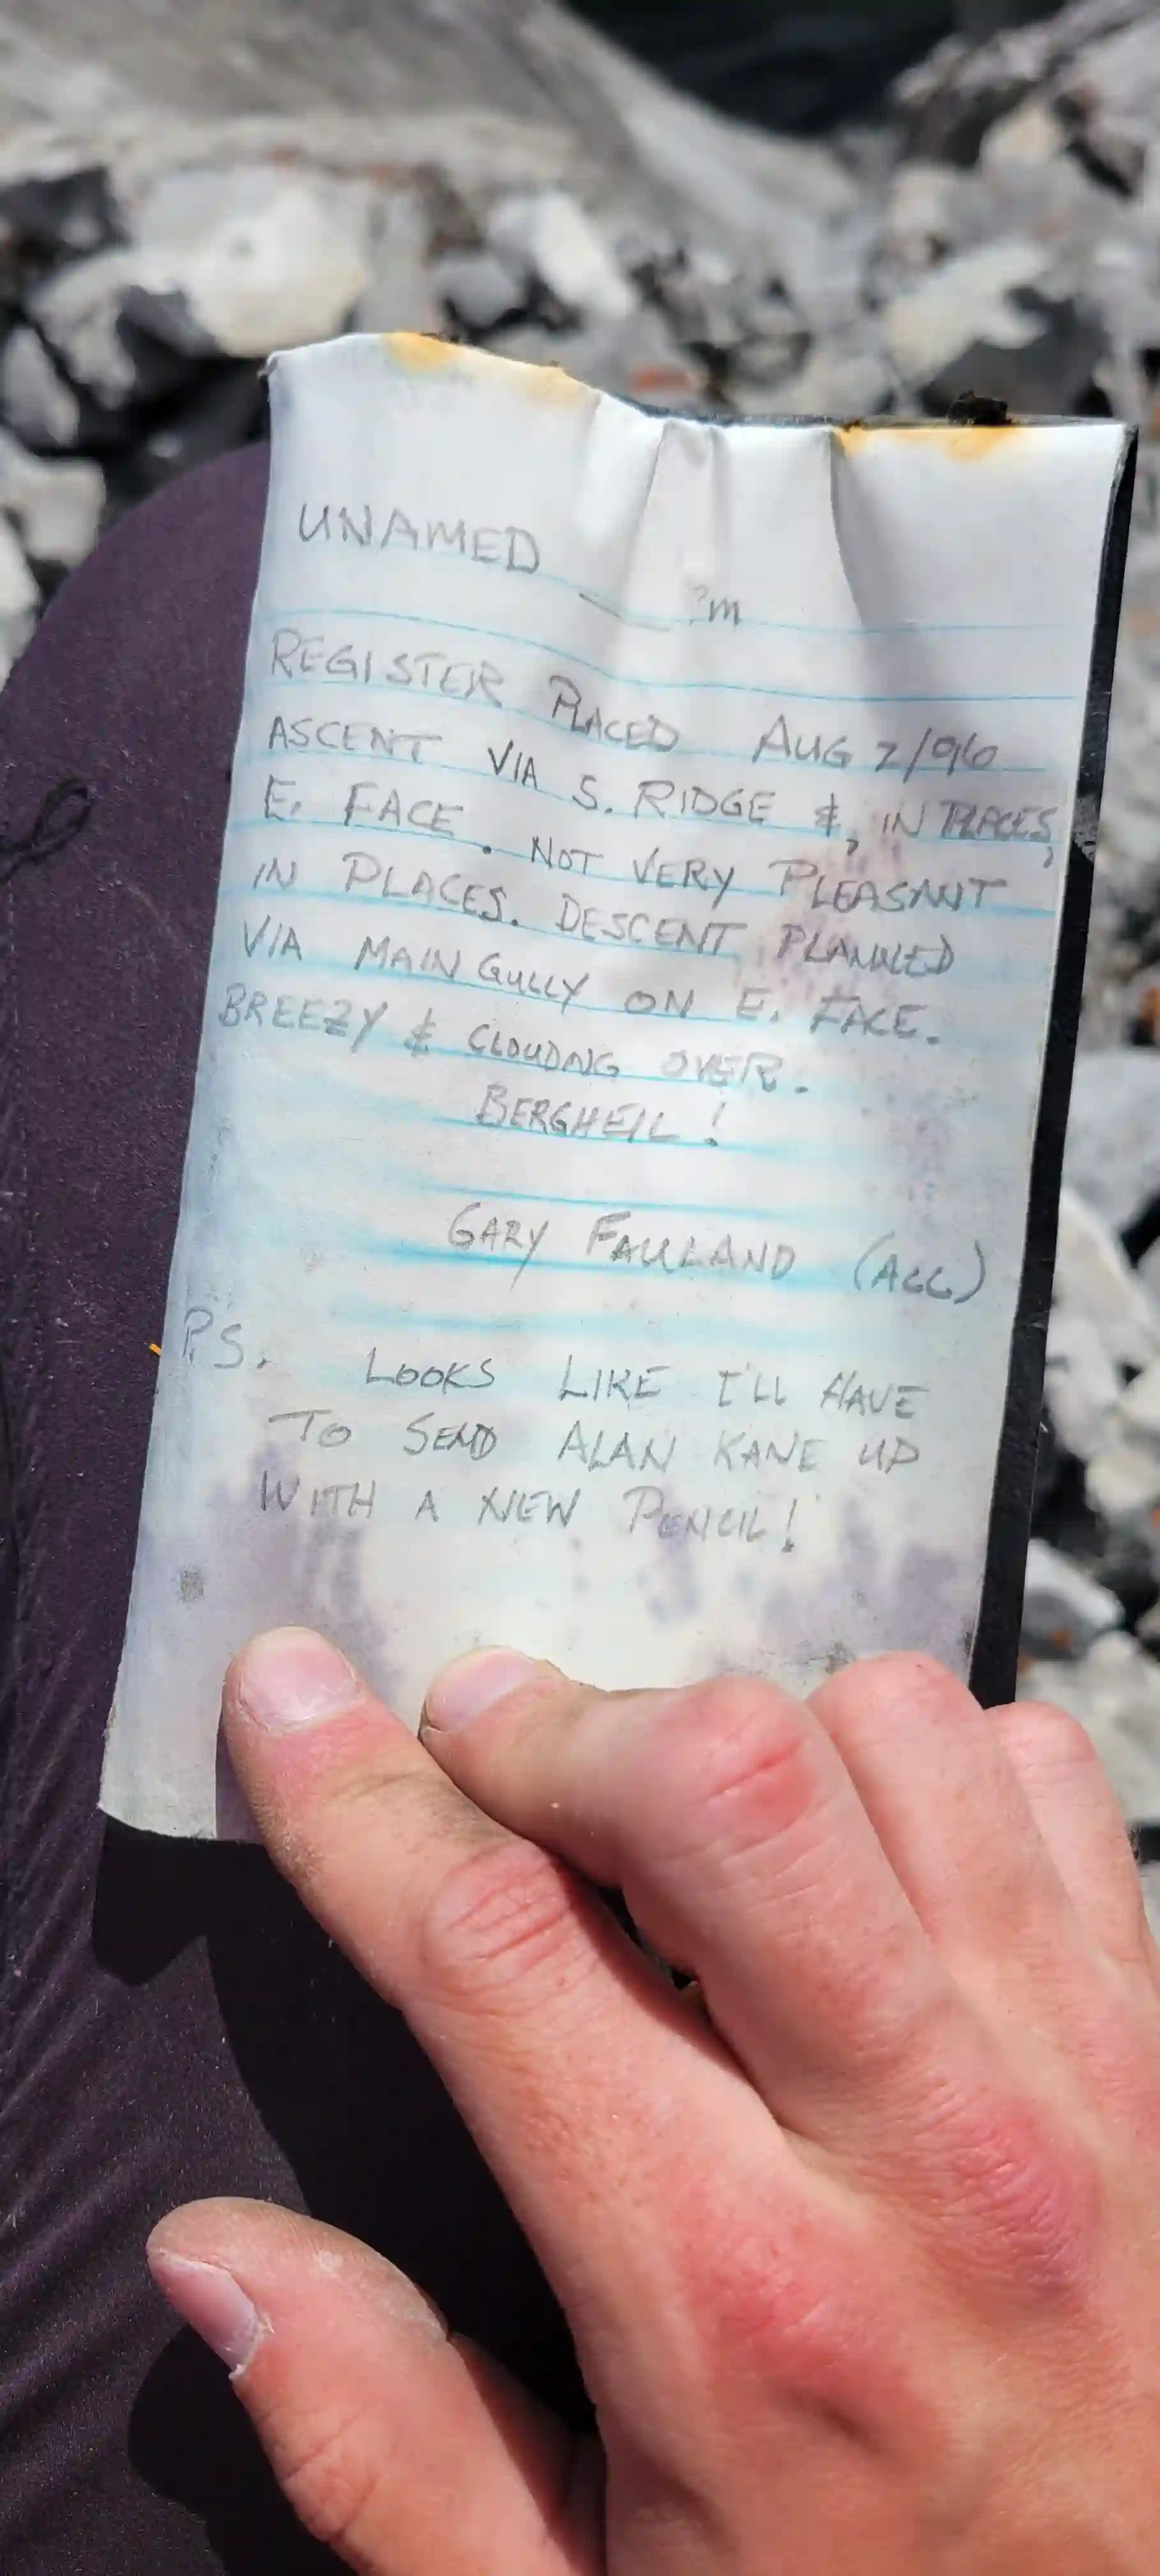 UNAMED
?m
REGISTER PLACED AUG 2/96
ASCENT VIA S. RIDGE &, IN PLACES,
E. FACE. NOT VERY PLEASANT
IN PLACES. DESCENT PLANNED
VIA MAIN GULLY ON E. FACE.
BREEZY & CLOUDNG OVER.
BERGHEIL!
GARY FAULAND (ACC)
P.S. LOOKS LIKE I'LL HAVE
TO SEND ALAN KANE UP
WITH A NEW PENCIL!